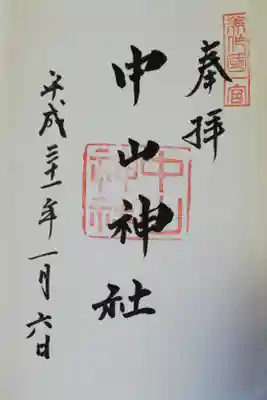 美作國一宮
奉拝
中山神社
中山神社
平成三十一年一月六日